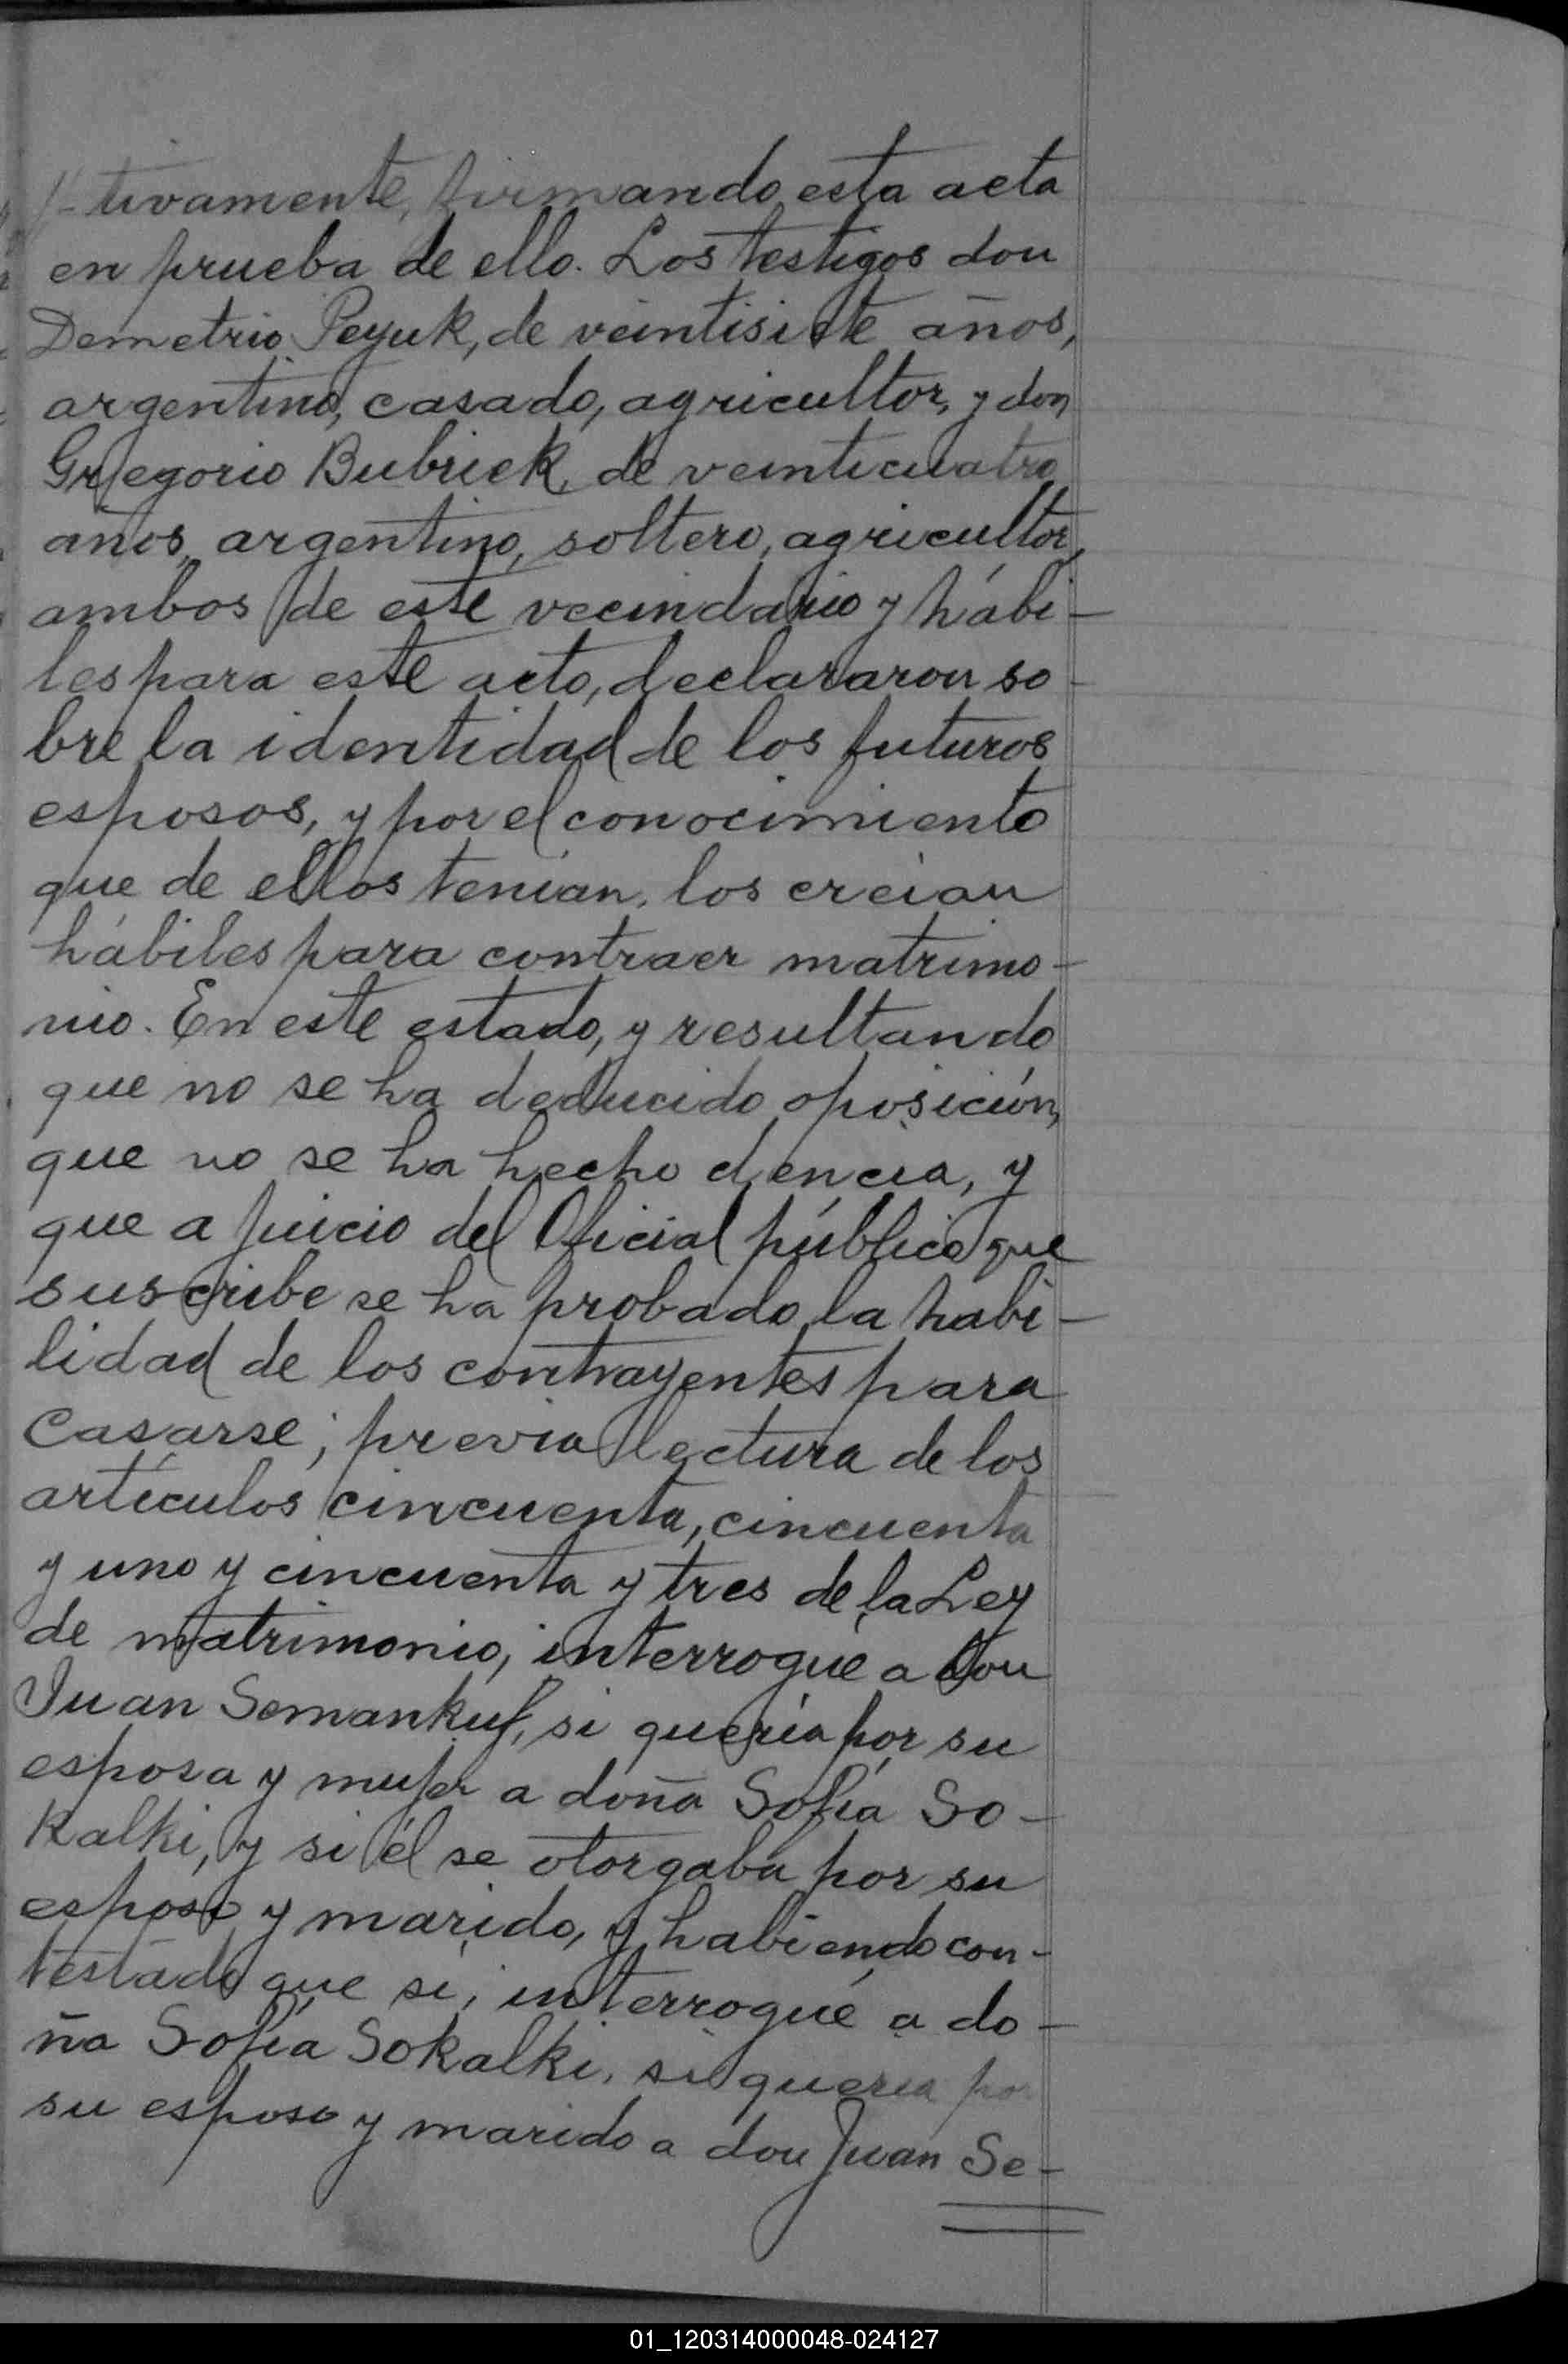 //-tivamente, firmando esta acta
en prueba de ello. Los testigos don
Demetrio Peyuk, de veintisiete años,
argentino, casado, agricultor, y don
Gregorio Bubriek, de veinticuatro
años, argentino, soltero, agricultor,
ambos de este vecindario y hábi-
les para este acto, declararon so-
bre la identidad de los futuros
esposos, y por el conocimiento
que de ellos tenían, los creían
hábiles para contraer matrimo-
nio. En este estado, y resultando
que no se ha deducido oposición,
que no se ha hecho dencia, y
que a juicio del Oficial público que
suscribe se ha probado la habi-
lidad de los contrayentes para
casarse; previa lectura de los
artículos cincuenta, cincuenta
y uno y cincuenta y tres de la Ley
de matrimonio, interrogué a don
Juan Semankuf, si quería por su
esposa y mujer a doña Sofía So-
kalki, y si él se otorgaba por su
esposo y marido, y habiendo con-
testado que sí, interrogué a do-
ña Sofía Sokalki, si quería por
su esposo y marido a don Juan Se-
01_120314000048-024127